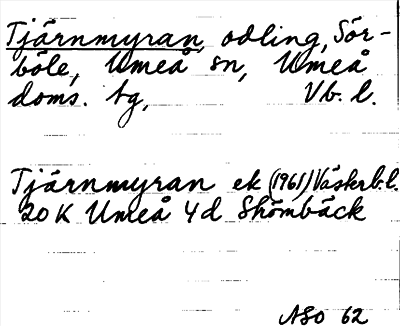 Tjärnmyran, odling, Sör-
böle, Umeå sn, Umeå
doms. tg, Vb. l.
Tjärnmyran ek (1961) Västerb.l.
20 K Umeå 4d Skömbäck
ASO 62